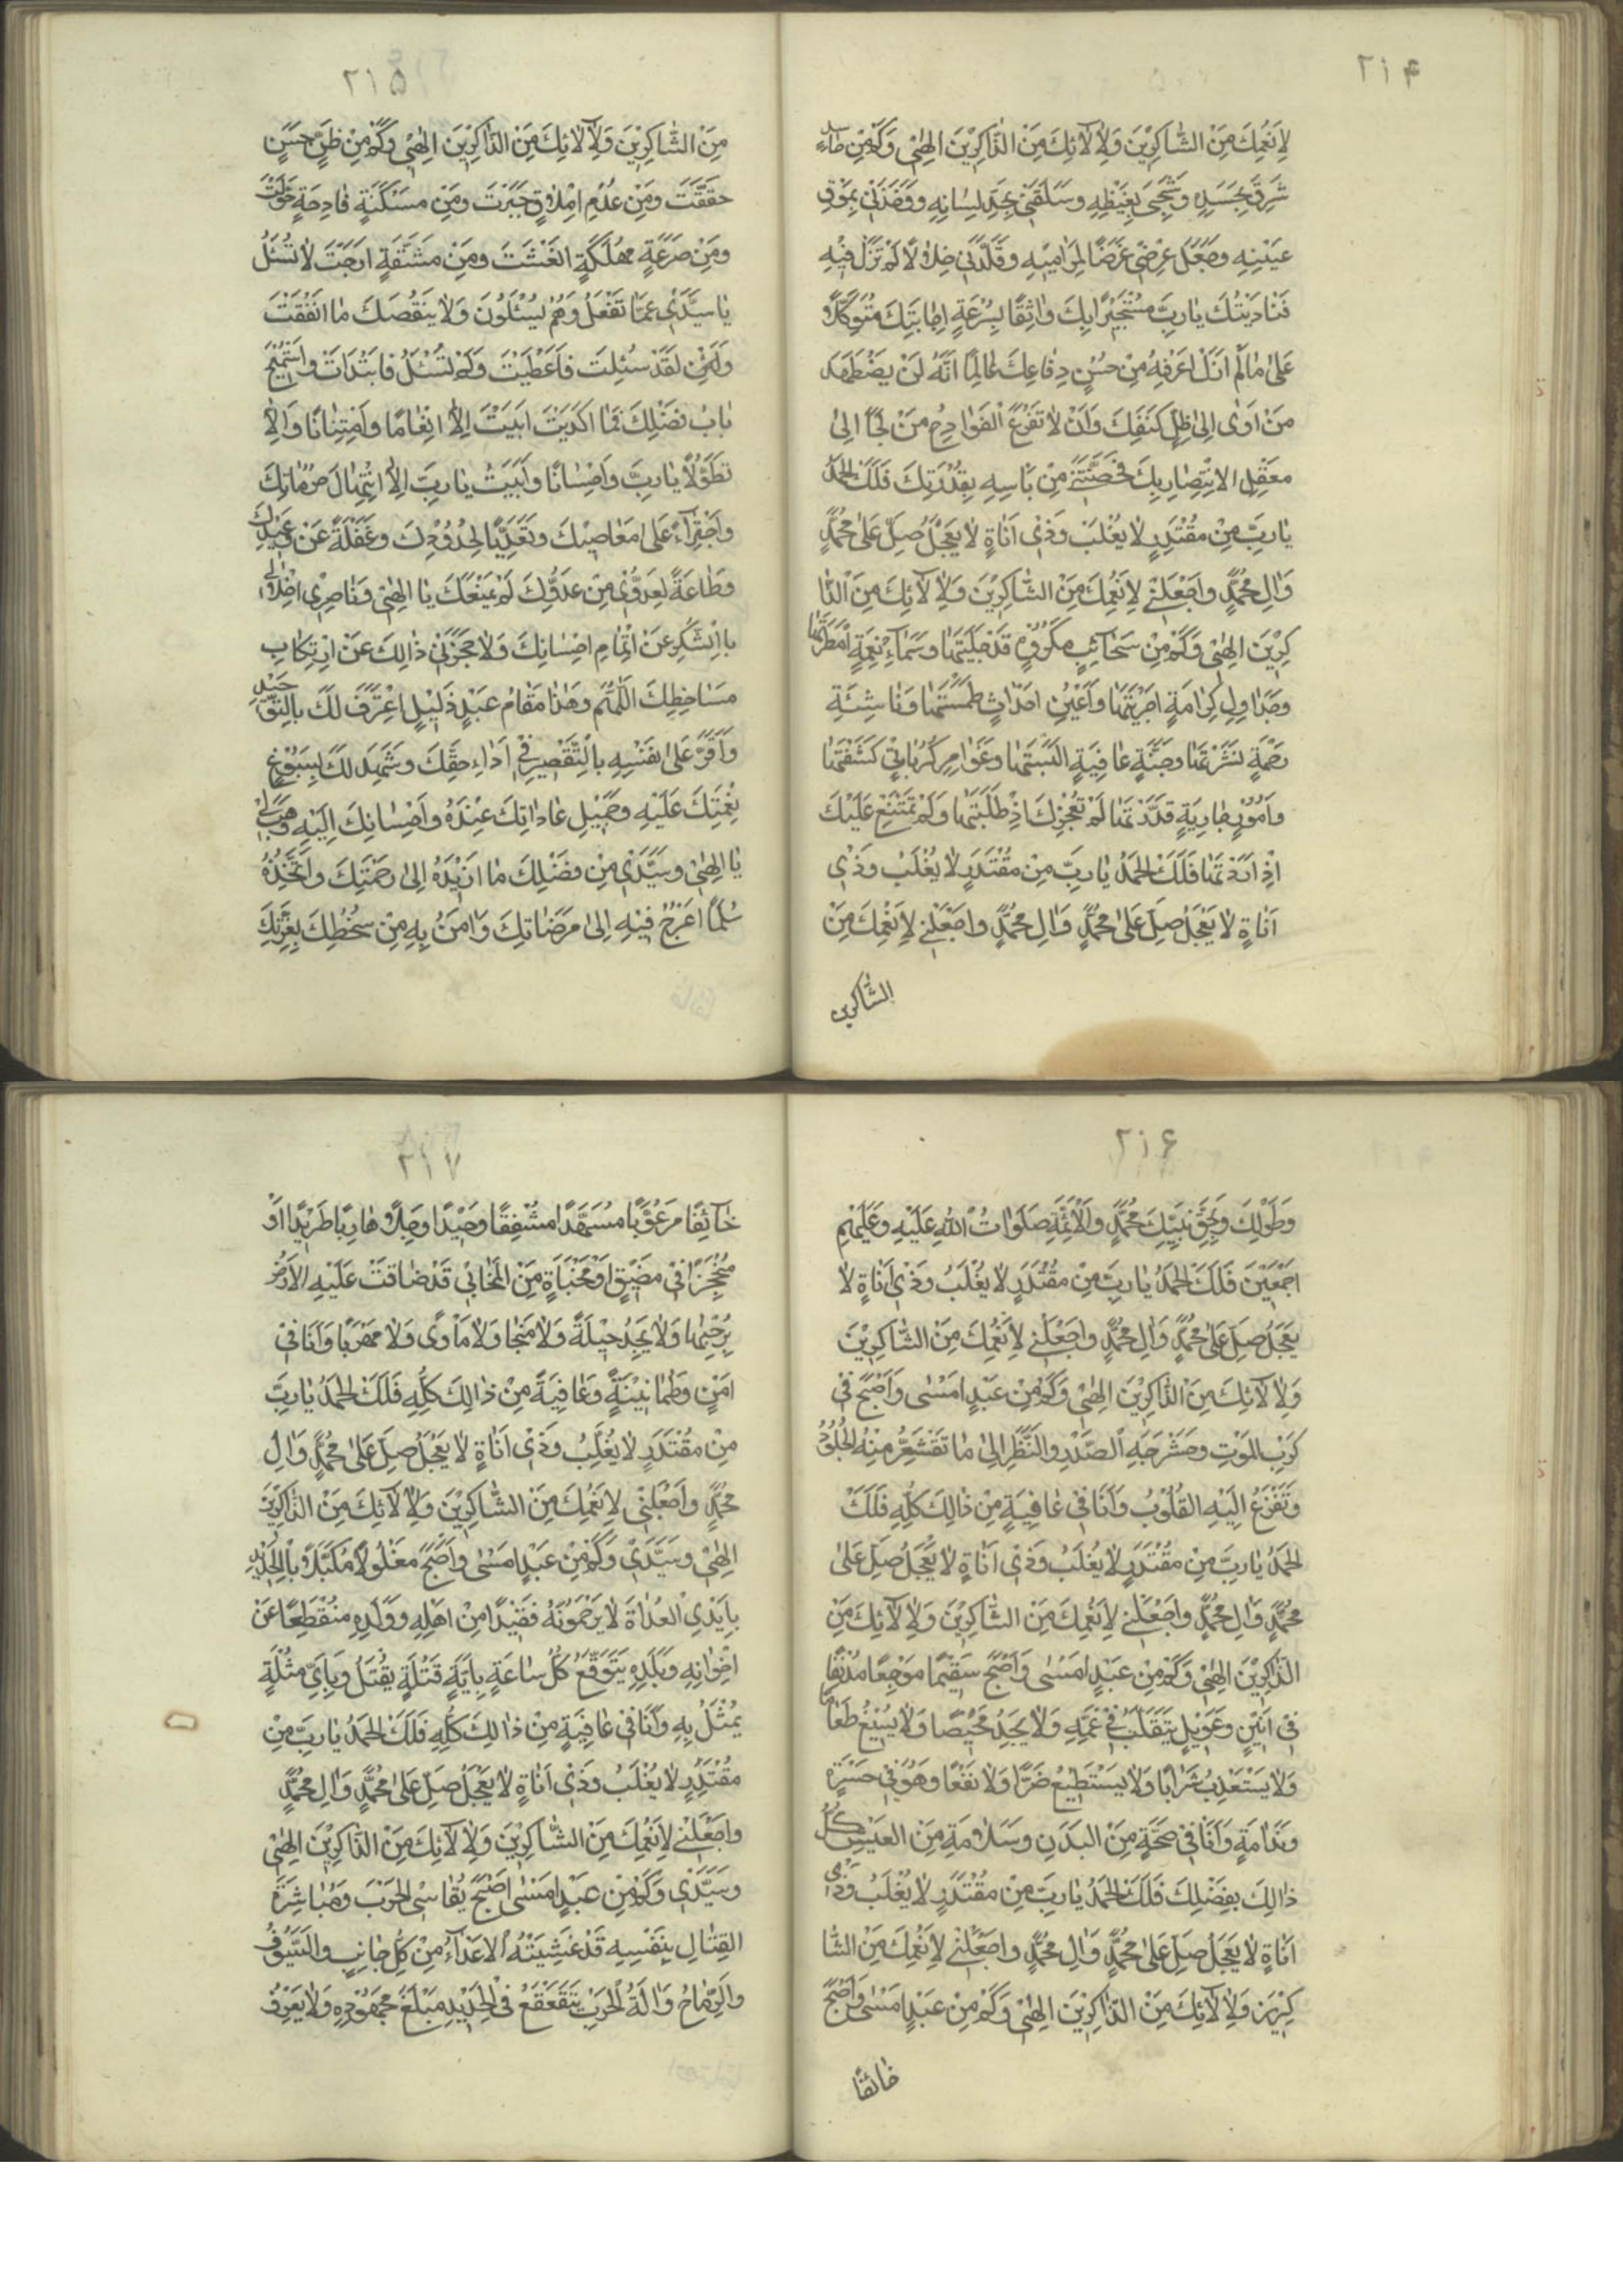 ٢١۴
لِاَنْعُمِكَ مِنَ الشّاكِرينَ وَلِآلائِكَ مِنَ الذّاكِرينَ اِلهي وَكَمْ مِنْ حاسِدٍ
شَرِقَ بِحَسَدِهِ وَشَجِيَ بِغَيْظِهِ وَسَلَقَني بِحَدِّ لِسانِهِ وَوَخَزَني بِمُوقِ
عَيْنِهِ وَجَعَلَ عِرْضي غَرَضًا لِمَراميهِ وَقَلَّدَني خِلالًا لَمْ تَزَلْ فيهِ
فَنادَيْتُكَ يا رَبِّ مُسْتَجيرًا بِكَ واثِقًا بِسُرْعَةِ اِجابَتِكَ مُتَوَكِّلًا
عَلى ما لَمْ اَزَلْ اَعْرِفُهُ مِنْ حُسْنِ دِفاعِكَ عالِمًا اَنَّهُ لَنْ يُضْطَهَدَ
مَنْ اَوى اِلى ظِلِّ كَنَفِكَ وَاَنْ لا تَقْرَعَ الْفَوادِحُ مَنْ لَجَأَ اِلى
مَعْقِلِ الاِنْتِصارِ بِكَ فَحَصَّنْتَني مِنْ بَأْسِهِ بِقُدْرَتِكَ فَلَكَ الْحَمْدُ
يا رَبِّ مِنْ مُقْتَدِرٍ لا يُغْلَبُ وَذي اَناةٍ لا يَعْجَلُ صَلِّ عَلى مُحَمَّدٍ
وَالِ مُحَمَّدٍ وَاجْعَلْني لِاَنْعُمِكَ مِنَ الشّاكِرينَ وَلِآلائِكَ مِنَ الذّا
كِرينَ اِلهي وَكَمْ مِنْ سَحائِبِ مَكْرُوهٍ قَدْ جَلَّيْتَها وَسَماءِ نِعْمَةٍ اَمْطَرْتَها
وَجَداوِلِ كَرامَةٍ اَجْرَيْتَها وَاَعْيُنِ اَحْداثٍ طَمَسْتَها وَناشِئَةِ
رَحْمَةٍ نَشَرْتَها وَجُنَّةِ عافِيَةٍ اَلْبَسْتَها وَغَوامِرِ كُرُباتٍ كَشَفْتَها
وَاُمُورٍ جارِيَةٍ قَدَّرْتَها لَمْ تُعْجِزْكَ اِذْ طَلَبْتَها وَلَمْ تَمْتَنِعْ عَلَيْكَ
اِذْ اَرَدْتَها فَلَكَ الْحَمْدُ يا رَبِّ مِنْ مُقْتَدِرٍ لا يُغْلَبُ وَذي
اَناةٍ لا يَعْجَلُ صَلِّ عَلى مُحَمَّدٍ وَالِ مُحَمَّدٍ وَاجْعَلْني لِاَنْعُمِكَ مِنَ
الشّاكرين
٢١۵
مِنَ الشّاكِرينَ وَلِآلائِكَ مِنَ الذّاكِرينَ اِلهي وَكَمْ مِنْ ظَنٍّ حَسَنٍ
حَقَّقْتَ وَمِنْ عُدْمِ اِمْلاقٍ جَبَرْتَ وَمِنْ مَسْكَنَةٍ فادِحَةٍ حَوَّلْتَ
وَمِنْ صَرْعَةٍ مُهْلِكَةٍ اَنْعَشْتَ وَمِنْ مَشَقَّةٍ اَرَحْتَ لا تُسْئَلُ
يا سَيِّدي عَمّا تَفْعَلُ وَهُمْ يُسْئَلُونَ وَلا يَنْقُصُكَ ما اَنْفَقْتَ
وَلَئِنْ لَقَدْ سُئِلْتَ فَاَعْطَيْتَ وَلَمْ تُسْئَلْ فَابْتَدَأْتَ وَاسْتُميحَ
بابُ فَضْلِكَ فَما اَكْدَيْتَ اَبَيْتَ اِلّا اِنْعامًا وَامْتِنانًا وَاِلّا
تَطَوُّلًا يا رَبِّ وَاِحْسانًا وَاَبَيْتُ يا رَبِّ اِلّا انْتِهاكَ حُرُماتِكَ
وَاجْتِراءً عَلى مَعاصيكَ وَتَعَدِّيًا لِحُدُودِكَ وَغَفْلَةً عَنْ وَعيدِكَ
وَطاعَةً لِعَدُوّي مِنْ عَدُوِّكَ لَمْ يَمْنَعْكَ يا اِلهي وَناصِري اِخْلالي
بِالشُّكْرِ عَنْ اِتْمامِ اِحْسانِكَ وَلا حَجَزَني ذلِكَ عَنْ اِرْتِكابِ
مَساخِطِكَ اَللّهُمَّ وَهذا مَقامُ عَبْدٍ ذَليلٍ اِعْتَرَفَ لَكَ بِالتَّوْحيدِ
وَاَقَرَّ عَلى نَفْسِهِ بِالتَّقْصيرِ في اَداءِ حَقِّكَ وَشَهِدَ لَكَ بِسُبُوغِ
نِعْمَتِكَ عَلَيْهِ وَجَميلِ عاداتِكَ عِنْدَهُ وَاِحْسانِكَ اِلَيْهِ فَهَبْ لي
يا اِلهي وَسَيِّدي مِنْ فَضْلِكَ ما اُريدُهُ اِلى رَحْمَتِكَ وَاَتَّخِذُهُ
سُلَّمًا اَعْرُجُ فيهِ اِلى مَرْضاتِكَ وَامَنُ بِهِ مِنْ سَخَطِكَ بِعِزَّتِكَ
٢١۶
وَطَوْلِكَ وَبِحَقِّ نَبِيِّكَ مُحَمَّدٍ وَالْاَئِمَّةِ صَلَواتُ اللهِ عَلَيْهِ وَعَلَيْهِمْ
اَجْمَعينَ فَلَكَ الْحَمْدُ يا رَبِّ مِنْ مُقْتَدِرٍ لا يُغْلَبُ وَذي اَناةٍ لا
يَعْجَلُ صَلِّ عَلى مُحَمَّدٍ وَالِ مُحَمَّدٍ وَاجْعَلْني لِاَنْعُمِكَ مِنَ الشّاكِرينَ
وَلِآلائِكَ مِنَ الذّاكِرينَ اِلهي وَكَمْ مِنْ عَبْدٍ اَمْسى وَاَصْبَحَ في
كَرْبِ الْمَوْتِ وَحَشْرَجَةِ الصَّدْرِ وَالنَّظَرِ اِلى ما تَقْشَعِرُّ مِنْهُ الْجُلُودُ
وَتَفْزَعُ اِلَيْهِ الْقُلُوبُ وَاَنَا في عافِيَةٍ مِنْ ذلِكَ كُلِّهِ فَلَكَ
الْحَمْدُ يا رَبِّ مِنْ مُقْتَدِرٍ لا يُغْلَبُ وَذي اَناةٍ لا يَعْجَلُ صَلِّ عَلى
مُحَمَّدٍ وَالِ مُحَمَّدٍ وَاجْعَلْني لِاَنْعُمِكَ مِنَ الشّاكِرينَ وَلِآلائِكَ مِنَ
الذّاكِرينَ اِلهي وَكَمْ مِنْ عَبْدٍ اَمْسى وَاَصْبَحَ سَقيمًا مُوجَعًا مُدْنِفًا
في اَنينٍ وَعَويلٍ يَتَقَلَّبُ في غَمِّهِ وَلا يَجِدُ مَحيصًا وَلا يُسيغُ طَعامًا
وَلا يَسْتَعْذِبُ شَرابًا وَلا يَسْتَطيعُ ضَرًّا وَلا نَفْعًا وَهُوَ في حَسْرَةٍ
وَنَدامَةٍ وَاَنَا في صِحَّةٍ مِنَ الْبَدَنِ وَسَلامَةٍ مِنَ الْعَيْشِ كُلُّ
ذلِكَ بِفَضْلِكَ فَلَكَ الْحَمْدُ يا رَبِّ مِنْ مُقْتَدِرٍ لا يُغْلَبُ وَذي
اَناةٍ لا يَعْجَلُ صَلِّ عَلى مُحَمَّدٍ وَالِ مُحَمَّدٍ وَاجْعَلْني لِاَنْعُمِكَ مِنَ الشّا
كِرينَ وَلِآلائِكَ مِنَ الذّاكِرينَ اِلهي وَكَمْ مِنْ عَبْدٍ اَمْسى وَاَصْبَحَ
خائفًا
٢١٧
خائِفًا مَرْعُوبًا مُسَهَّدًا مُشْفِقًا وَحيدًا وَجِلًا هارِبًا طَريدًا اَوْ
مُنْحَجِزًا في مَضيقٍ اَوْ مَخْبَأَةٍ مِنَ الْمَخابي قَدْ ضاقَتْ عَلَيْهِ الْاَرْضُ
بِرُحْبِها وَلا يَجِدُ حيلَةً وَلا مَنْجا وَلا مَأْوىً وَلا مَهْرَبًا وَاَنَا في
اَمْنٍ وَطُمَأْنينَةٍ وَعافِيَةٍ مِنْ ذلِكَ كُلِّهِ فَلَكَ الْحَمْدُ يا رَبِّ
مِنْ مُقْتَدِرٍ لا يُغْلَبُ وَذي اَناةٍ لا يَعْجَلُ صَلِّ عَلى مُحَمَّدٍ وَالِ
مُحَمَّدٍ وَاجْعَلْني لِاَنْعُمِكَ مِنَ الشّاكِرينَ وَلِآلائِكَ مِنَ الذّاكِرينَ
اِلهي وَسَيِّدي وَكَمْ مِنْ عَبْدٍ اَمْسى وَاَصْبَحَ مَغْلُولًا مُكَبَّلًا بِالْحَديدِ
بِاَيْدِي الْعُداةِ لا يَرْحَمُونَهُ فَقيدًا مِنْ اَهْلِهِ وَوَلَدِهِ مُنْقَطِعًا عَنْ
اِخْوانِهِ وَبَلَدِهِ يَتَوَقَّعُ كُلَّ ساعَةٍ بِاَيَّةِ قَتْلَةٍ يُقْتَلُ وَبِاَيِّ مُثْلَةٍ
يُمْثَلُ بِهِ وَاَنَا في عافِيَةٍ مِنْ ذلِكَ كُلِّهِ فَلَكَ الْحَمْدُ يا رَبِّ مِنْ
مُقْتَدِرٍ لا يُغْلَبُ وَذي اَناةٍ لا يَعْجَلُ صَلِّ عَلى مُحَمَّدٍ وَالِ مُحَمَّدٍ
وَاجْعَلْني لِاَنْعُمِكَ مِنَ الشّاكِرينَ وَلِآلائِكَ مِنَ الذّاكِرينَ اِلهي
وَسَيِّدي وَكَمْ مِنْ عَبْدٍ اَمْسى اَصْبَحَ يُقاسِي الْحَرْبَ وَمُباشَرَةَ
الْقِتالِ بِنَفْسِهِ قَدْ غَشِيَتْهُ الْاَعْداءُ مِنْ كُلِّ جانِبٍ وَالسُّيُوفُ
وَالرِّماحُ وَالَةُ الْحَرْبِ يَتَقَعْقَعُ في الْحَديدِ مَبْلَغَ مَجْهُودِهِ وَلا يَعْرِفُ